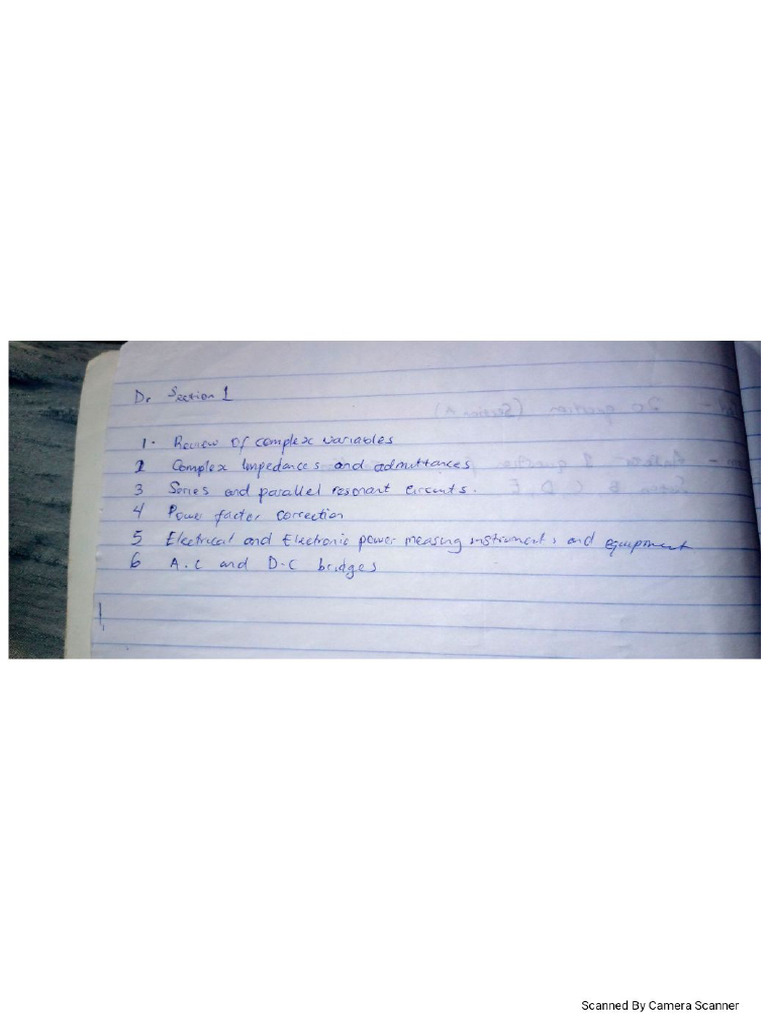 Dr Section 1
1. Review Of complex variables
2 Complex Impedances and admittances
3 Series and parallel resonant circuits.
4 Power factor correction
5 Electrical and Electronic power measing instruments and equipment
6 A.C and D.C bridges
20 question (Section A)
Answer 1 question
Section B C D, E
Scanned By Camera Scanner